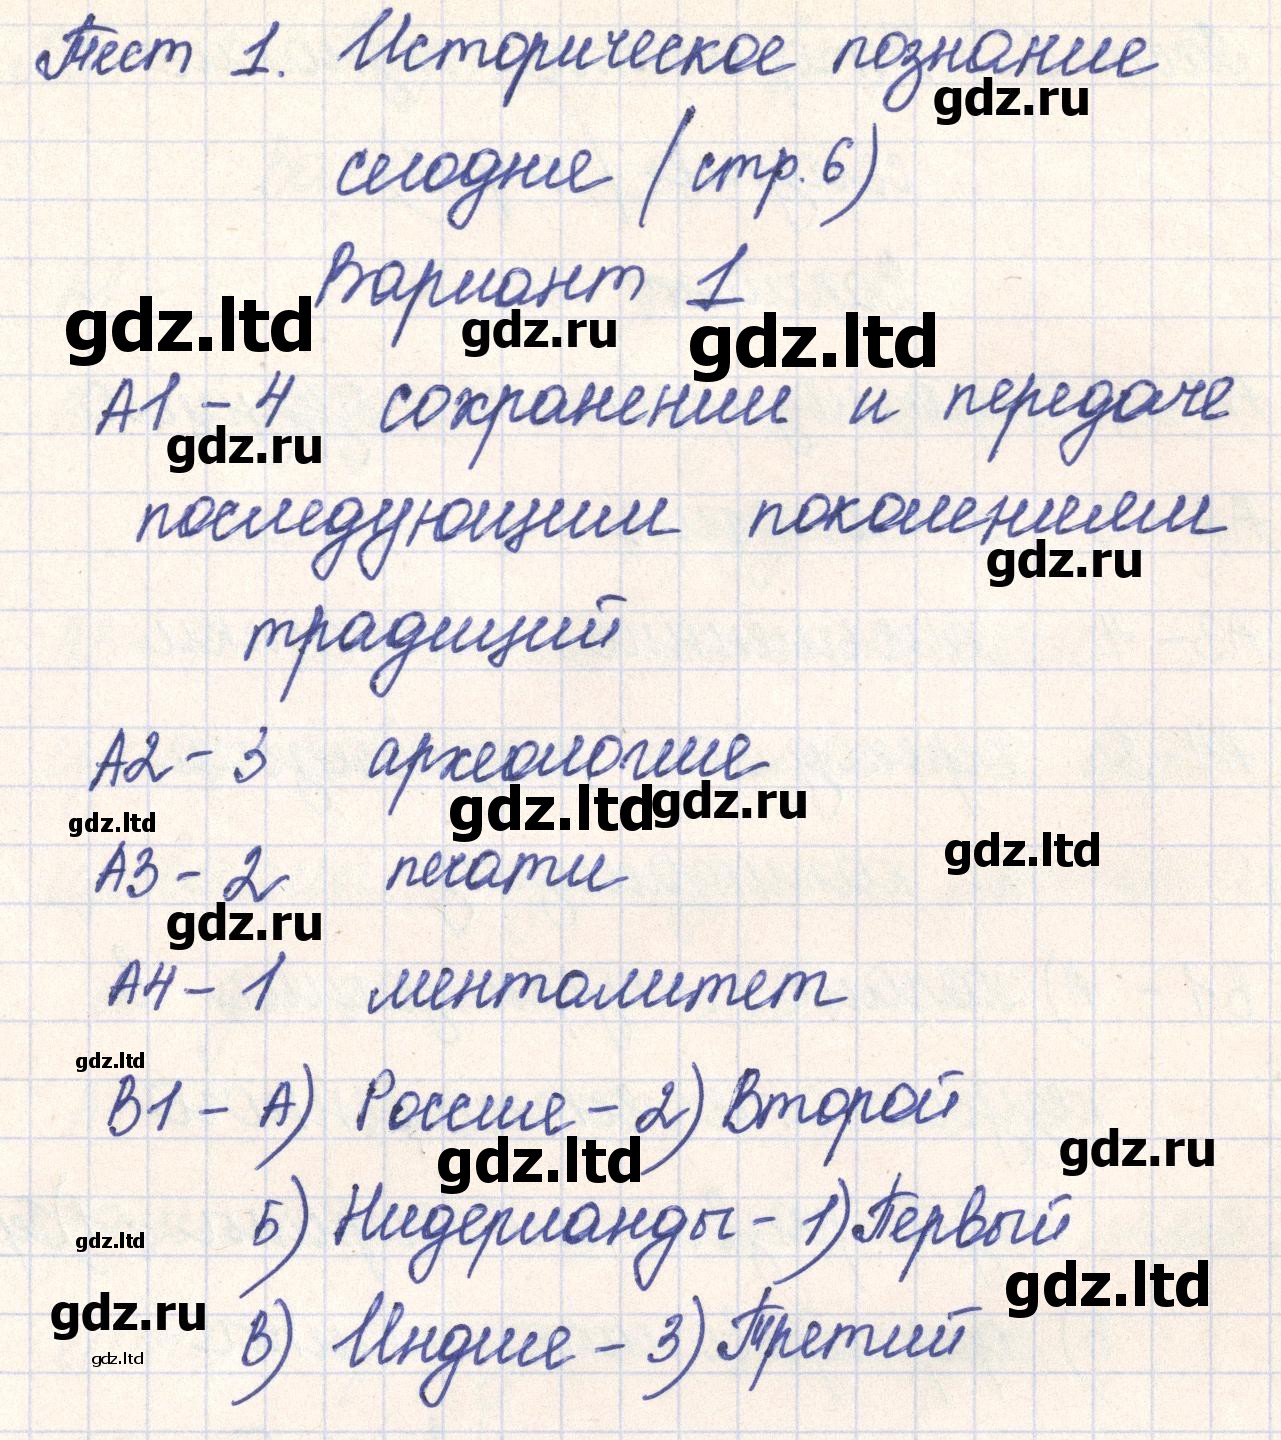 Тест 1. Историческое познание
gdz.ru
сегодня (стр. 6)
Вариант 1
gdz.ltd gdz.ru gdz.ltd
А1 - 4 сохранении и передаче
gdz.ru
последующим поколениям
gdz.ru
традиций
А2 - 3 археология
gdz.ltd gdz.ltd gdz.ru
gdz.ltd
А3 - 2 печати
gdz.ru
А4 - 1 менталитет
gdz.ltd
В1 - А) Россия - 2) Второй
gdz.ltd gdz.ru
Б) Нидерланды - 1) Первый
gdz.ltd
gdz.ltd
gdz.ru
В) Индия - 3) Третий
gdz.ltd